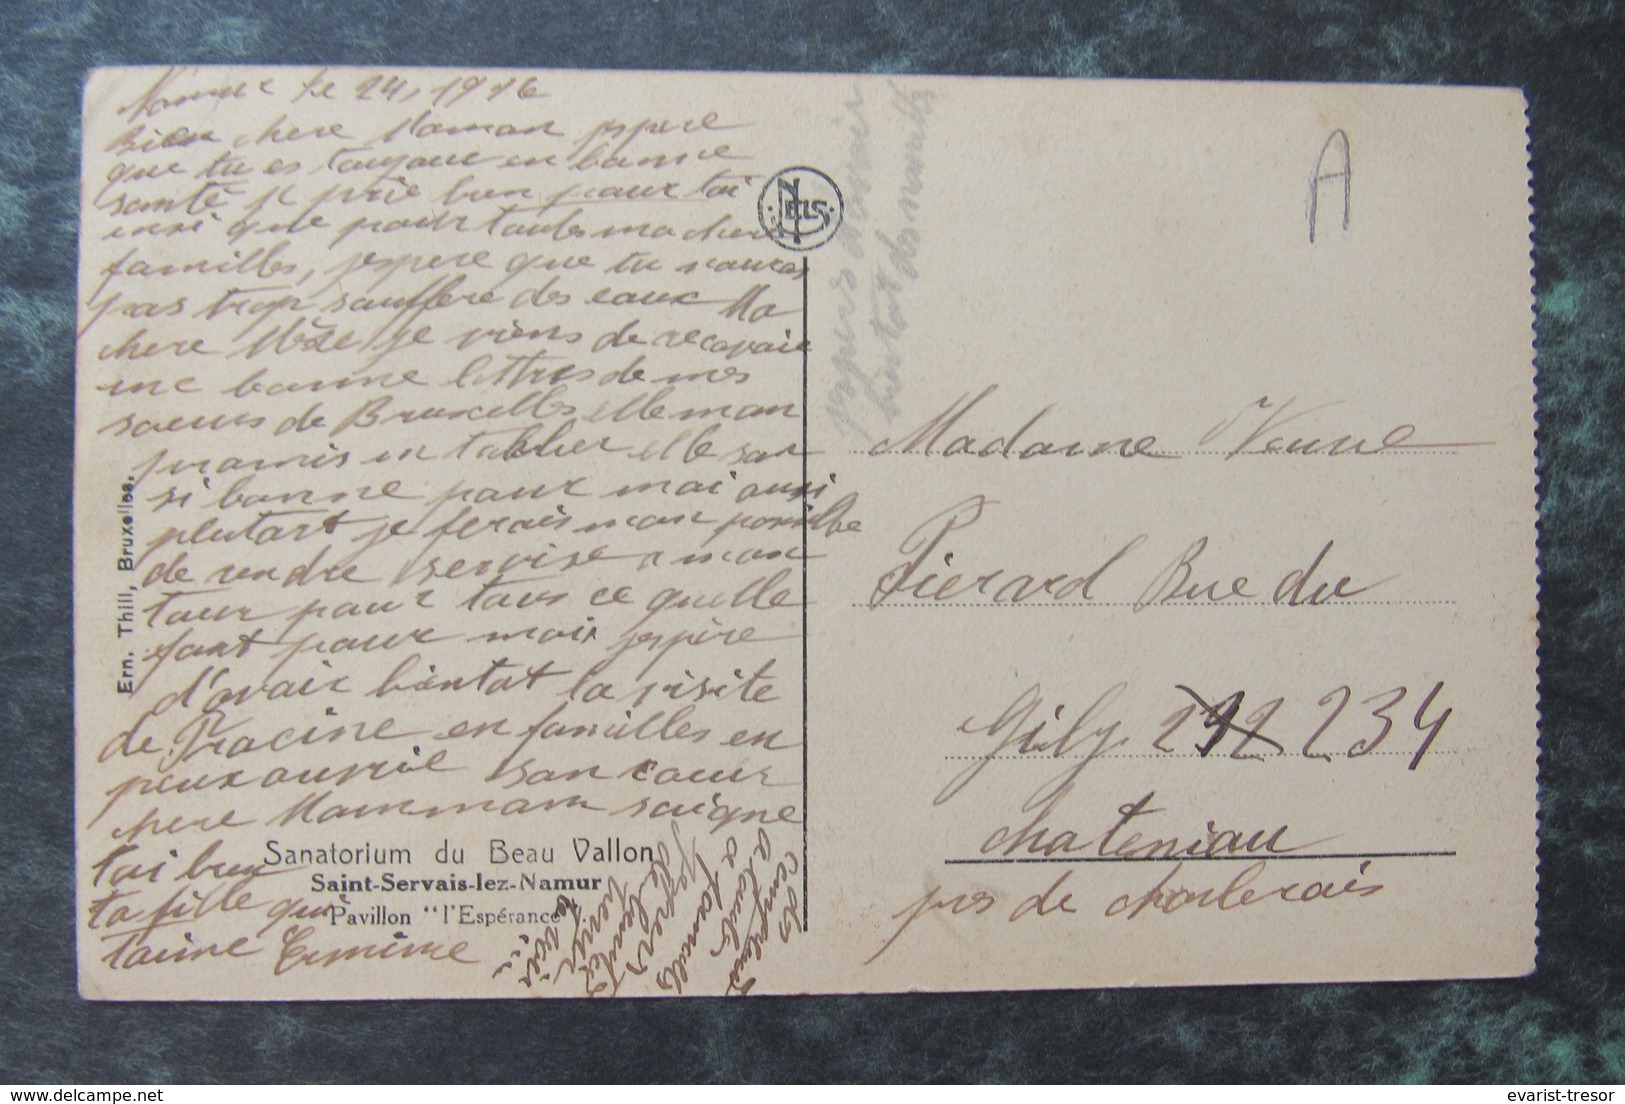 Namur le 24, 1926
Bien chere Maman jespere
que tu es toujour en bonne
santé je prie bien pour toi
insi que pour toutes ma chere
familles, jespere que tu nauras
pas trop souffere des eaux Ma
chere Mère je viens de recavoir
une bonne lettres de mes
soeurs de Bruxelles elle mon
promis un tablier elle son
si bonne pour moi ausi
plutart je ferais mon possilbe
de rendre servise a mon
tour pour tous ce quelle
font pour moi jespère
d'avoir bientot la visite
de Fracine en familles en
peux ouvrie son coeur
chere Mammam soigne
toi bien
ta fille qui
taime Ermine
Sanatorium du Beau Vallon
Saint-Servais-lez-Namur
Pavillon "l'Espérance".
Ern. Thill, Bruxelles.
NELS
jespers davoir
bintot des nouvells
A
Madame Veuve
Pierard Rue du
Gily 212 234
Chateniau
pres de charlerois
evarist-tresor